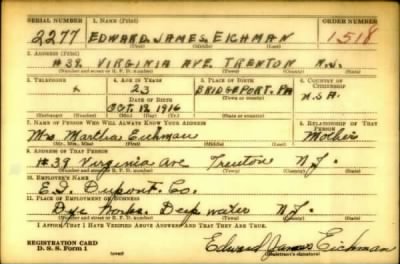 SERIAL NUMBER 1. NAME (Print) ORDER NUMBER
2277 EDWARD JAMES EICHMAN 1518
(First) (Middle) (Last)
2. ADDRESS (Print)
#39 VIRGINIA AVE TRENTON N.J.
(Number and street or R. F. D. number) (Town) (County) (State)
3. TELEPHONE 4. AGE IN YEARS 5. PLACE OF BIRTH 6. COUNTRY OF CITIZENSHIP
x 23 BRIDGEPORT, PA
DATE OF BIRTH (Town or county)
OCT. 12 1916 U.S.A.
7. NAME OF PERSON WHO WILL ALWAYS KNOW YOUR ADDRESS 8. RELATIONSHIP OF THAT PERSON
Mrs. Martha Eichman Mother
(Mr., Mrs., Miss) (First) (Middle) (Last)
9. ADDRESS OF THAT PERSON
#39 Virginia Ave Trenton N.J.
(Number and street or R. F. D. number) (Town) (County) (State)
10. EMPLOYER'S NAME
E.I. Dupont. Co.
11. PLACE OF EMPLOYMENT OR BUSINESS
Dye Works. Deep water N.J.
(Number and street or R. F. D. number) (Town) (County) (State)
I AFFIRM THAT I HAVE VERIFIED ABOVE ANSWERS AND THAT THEY ARE TRUE.
REGISTRATION CARD
D. S. S. Form 1 (over) Edward James Eichman
(Registrant's signature)